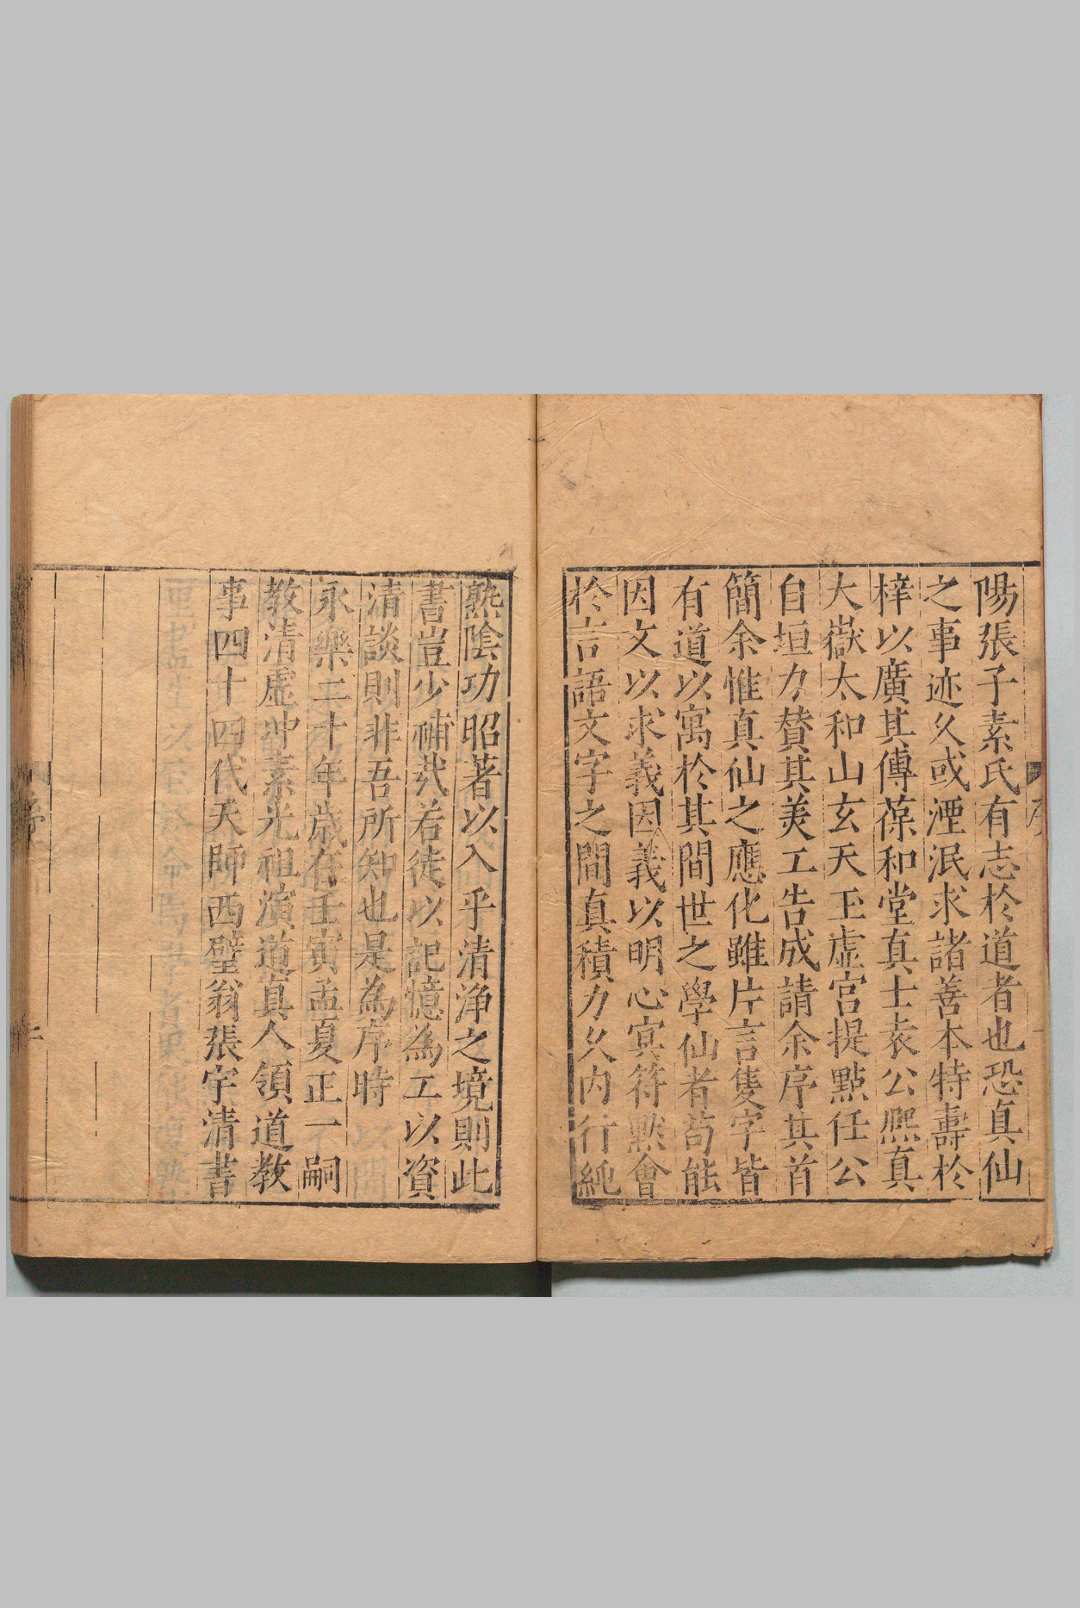 陽張子素氏有志於道者也恐真仙
之事迹久或湮泯求諸善本特壽於
梓以廣其傳葆和堂真士袁公熈真
大嶽太和山玄天玉虛宮提點任公
自垣力賛其美工告成請余序其首
簡余惟真仙之應化雖片言隻字皆
有道以寓於其間世之學仙者苟能
因文以求義因義以明心冥符黙會
於言語文字之間真積力久内行純
熟陰功昭著以入乎清浄之境則此
書豈少補㢤若徒以記憶為工以資
清談則非吾所知也是為序時
永樂二十年歳在壬寅孟夏正一嗣
教清虛冲素光祖演道真人領道教
事四十四代天師西壁翁張宇清書
序